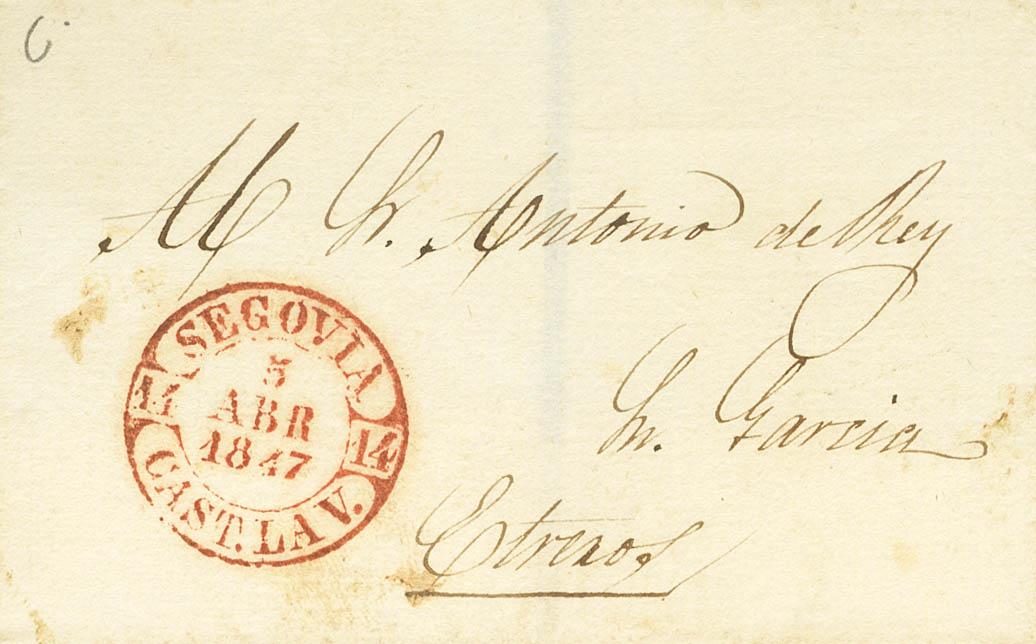 Al Sr. Antonio de Rey
Sn. Garcia
Etreros
SEGOVIA
5
ABR
1847
14 14
CAST. LA V.